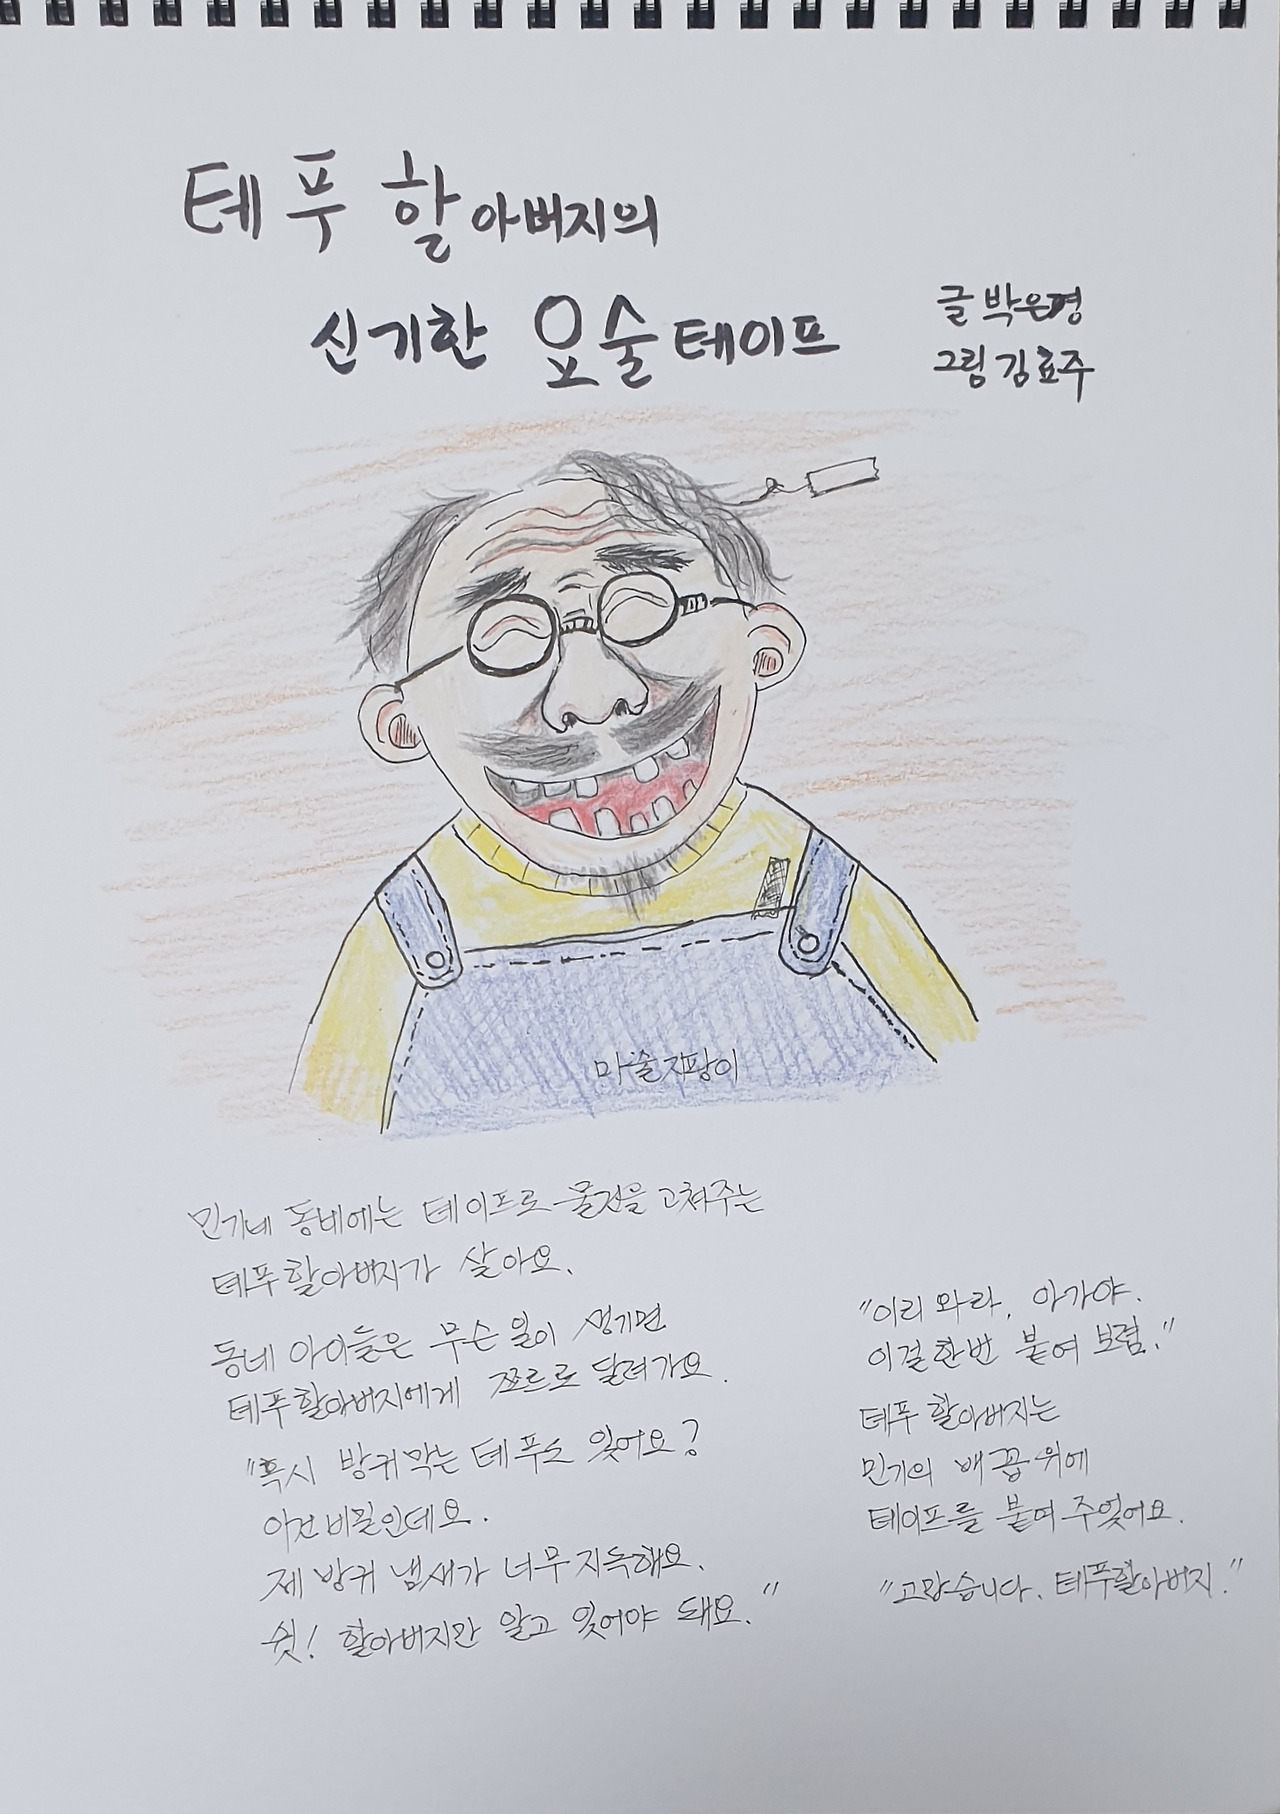 테푸 할아버지의
신기한 요술테이프
글 박은경
그림 김효주
마술지팡이
민기네 동네에는 테이프로 물건을 고쳐주는
테푸할아버지가 살아요.
동네 아이들은 무슨 일이 생기면
테푸할아버지에게 쪼르로 달려가요.
"혹시 방귀막는 테푸도 있어요?
이건 비밀인데요.
제 방귀 냄새가 너무 지독해요.
쉿! 할아버지만 알고 있어야 돼요."
"이리 와라, 아가야.
이걸 한번 붙여 보렴."
테푸 할아버지는
민기의 배꼽 위에
테이프를 붙여 주었어요.
"고맙습니다. 테푸할아버지."